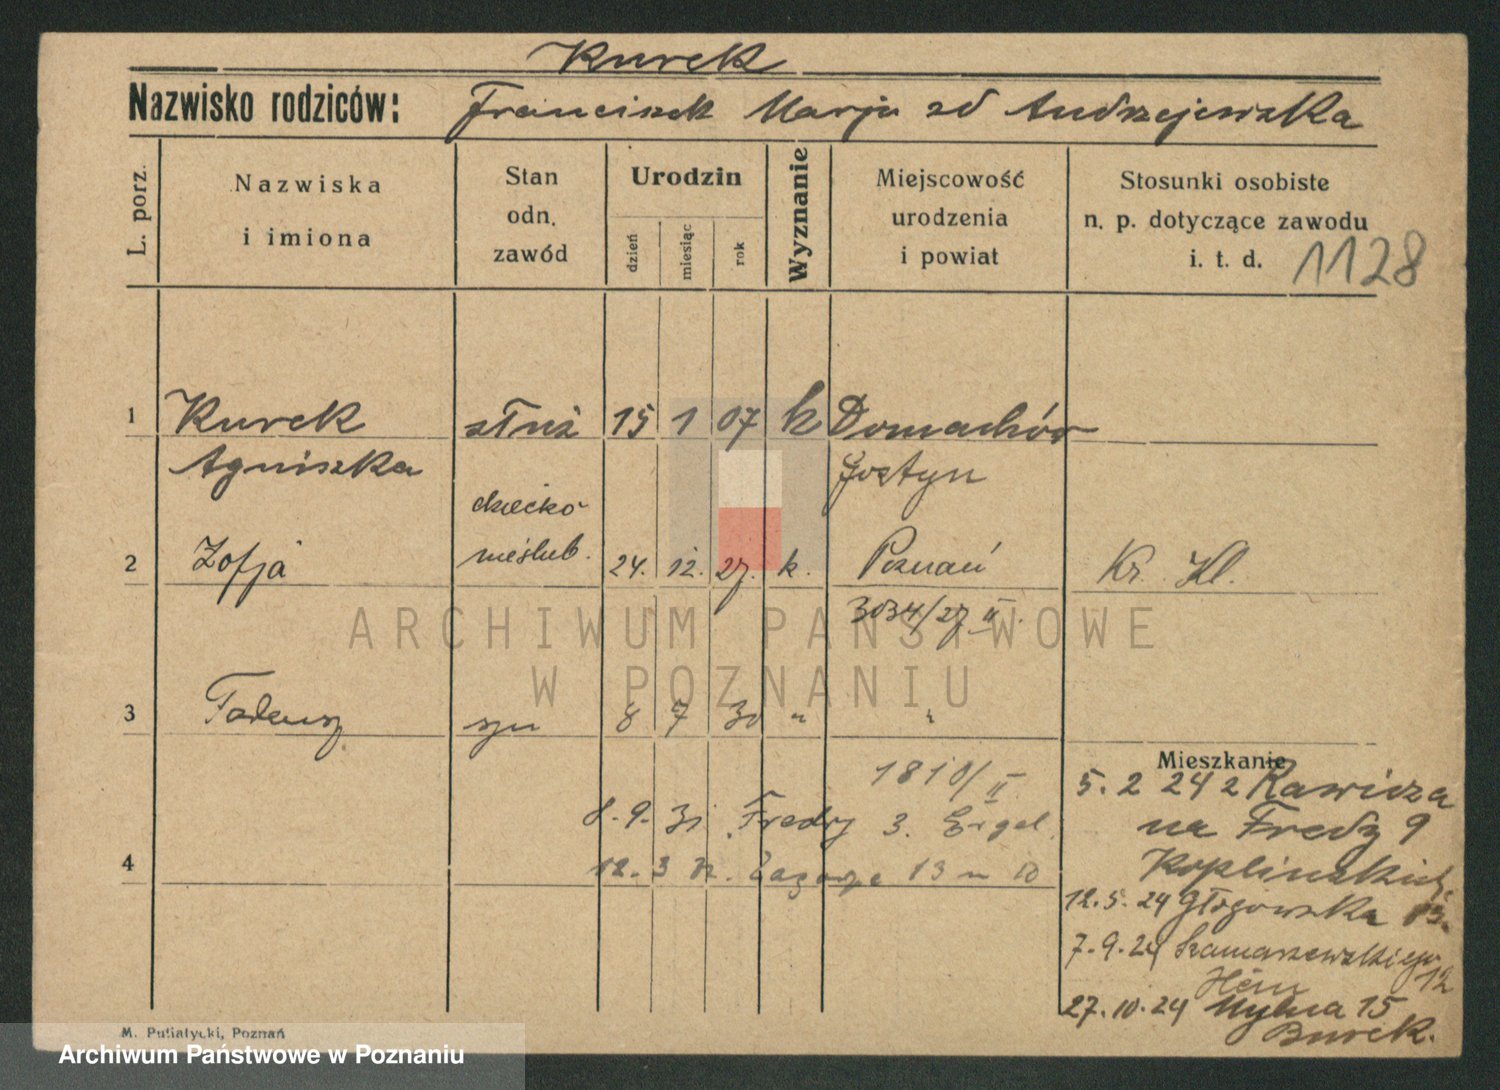 Kurek
Nazwisko rodziców: Franciszek Marja zd Andrzejewska
L. porz.
Nazwiska
i imiona
Stan
odn.
zawód
Urodzin
dzień
miesiąc
rok
Wyznanie
Miejscowość
urodzenia
i powiat
Stosunki osobiste
n. p. dotyczące zawodu
i. t. d.
1128
1 Kurek służ 15 1 07 k Domachów
Agniszka Gostyn
dziecko
nieślub.
2 Zofja 24. 12. 27. k. Poznań Kr. Kl.
3034/27 II.
ARCHIWUM PAŃSTWOWE
W POZNANIU
3 Tadeusz syn 8 7 30 " "
1810/II
Mieszkanie
5. 2 24 z Rawicza
na Fredy 9
8. 9. 31 Fredry 3.
4
12. 3 13 m 10
12. 5. 24 Głogowska 13.
7. 9. 24 Szamarzewskiego
12
27. 10. 24 Mylna 15
Burek.
M. Putiatycki, Poznań
Archiwum Państwowe w Poznaniu